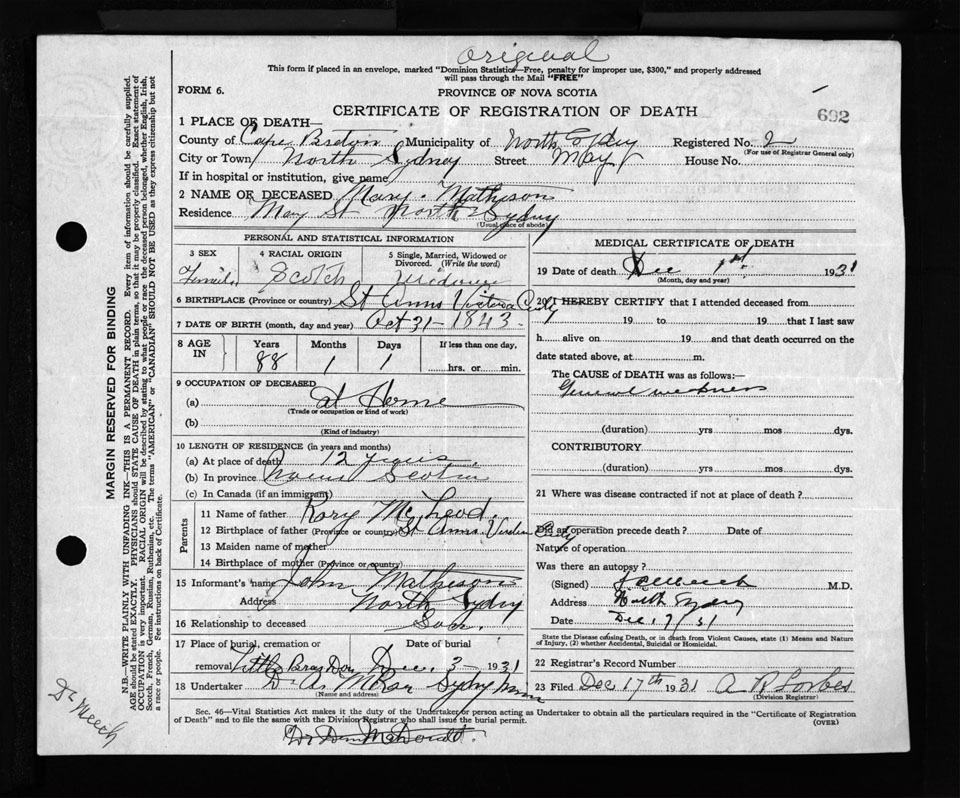 Original
This form if placed in an envelope, marked "Dominion Statistics—Free, penalty for improper use, $300," and properly addressed
will pass through the Mail "FREE"
FORM 6.
PROVINCE OF NOVA SCOTIA
CERTIFICATE OF REGISTRATION OF DEATH
692
1 PLACE OF DEATH—
County of Cape Breton Municipality of North Sydney Registered No. 2
(For use of Registrar General only)
City or Town North Sydney Street May St House No.
If in hospital or institution, give name
2 NAME OF DECEASED Mary Matheson
Residence May St North Sydney
(Usual place of abode)
PERSONAL AND STATISTICAL INFORMATION
3 SEX 4 RACIAL ORIGIN 5 Single, Married, Widowed or
Divorced. (Write the word)
Female Scotch Widow
6 BIRTHPLACE (Province or country) St Anns Victoria Cnty
7 DATE OF BIRTH (month, day and year) Oct 31 - 1843
8 AGE IN Years Months Days If less than one day,
88 1 1 hrs. or min.
9 OCCUPATION OF DECEASED
(a) at Home
(Trade or occupation or kind of work)
(b)
(Kind of industry)
10 LENGTH OF RESIDENCE (in years and months)
(a) At place of death 12 years
(b) In province Nova Scotia
(c) In Canada (if an immigrant)
Parents
11 Name of father Rory McLeod
12 Birthplace of father (Province or country) St Anns Victoria Cnty
13 Maiden name of mother
14 Birthplace of mother (Province or country)
15 Informant's name John Matheson
Address North Sydney
16 Relationship to deceased Son.
17 Place of burial, cremation or Date of burial
removal Little Bras Dor Dec. 3 - 1931
18 Undertaker D. A. McRae Sydney Mines
(Name and address)
MEDICAL CERTIFICATE OF DEATH
19 Date of death Dec 1st 1931
(Month, day and year)
20 I HEREBY CERTIFY that I attended deceased from
19 to 19 that I last saw
h alive on 19 and that death occurred on the
date stated above, at m.
The CAUSE of DEATH was as follows:—
General weakness
(duration) yrs mos dys.
CONTRIBUTORY
(duration) yrs mos dys.
21 Where was disease contracted if not at place of death?
Did an operation precede death? Date of
Nature of operation
Was there an autopsy?
(Signed) M.D.
Address North Sydney
Date Dec. 17/31
State the Disease causing Death, or in death from Violent Causes, state (1) Means and Nature
of Injury, (2) whether Accidental, Suicidal or Homicidal.
22 Registrar's Record Number
23 Filed Dec 17th 1931 A R Forbes
(Division Registrar)
Sec. 46—Vital Statistics Act makes it the duty of the Undertaker or person acting as Undertaker to obtain all the particulars required in the "Certificate of Registration
of Death" and to file the same with the Division Registrar who shall issue the burial permit.
(OVER)
MARGIN RESERVED FOR BINDING
N.B.—WRITE PLAINLY WITH UNFADING INK—THIS IS A PERMANENT RECORD. Every item of information should be carefully supplied.
AGE should be stated EXACTLY. PHYSICIANS should STATE CAUSE OF DEATH in plain terms, so that it may be properly classified. Exact statement of
OCCUPATION is very important. RACIAL ORIGIN will be described by stating to what people or race the deceased person belonged, whether English, Irish,
Scotch, French, German, Russian, Ruthenian, etc. The terms "AMERICAN" or "CANADIAN" SHOULD NOT BE USED as they express citizenship but not
a race or people. See instructions on back of Certificate.
Dr Meech